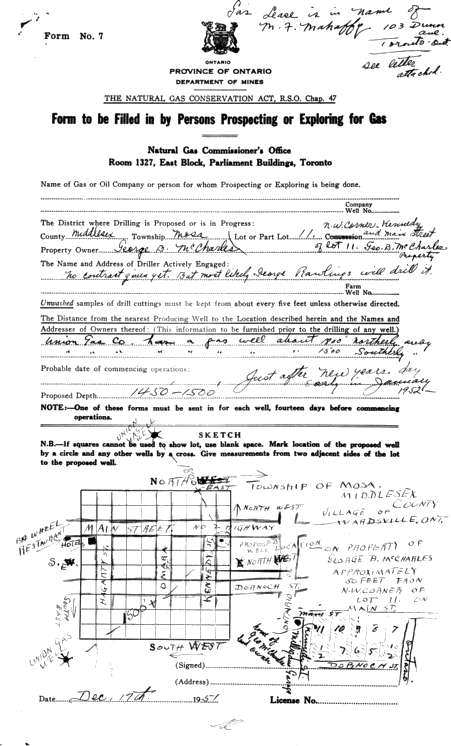 Gas Lease is in name of
M. F. Mahaffy 103 Dunn
ave.
Toronto. Ont
see letter
attached.
Form No. 7
ONTARIO
PROVINCE OF ONTARIO
DEPARTMENT OF MINES
THE NATURAL GAS CONSERVATION ACT, R.S.O. Chap. 47
Form to be Filled in by Persons Prospecting or Exploring for Gas
Natural Gas Commissioner's Office
Room 1327, East Block, Parliament Buildings, Toronto
Name of Gas or Oil Company or person for whom Prospecting or Exploring is being done.
Company
Well No.
The District where Drilling is Proposed or is in Progress: N.W. Corner Kennedy
County Middlesex Township Mosa Lot or Part Lot 11. Concession and Main Street
Property Owner George B. McCharles of lot 11. Geo. B. McCharles
Property
The Name and Address of Driller Actively Engaged:
No contract given yet. But most likely George Rawlings will drill it.
Farm
Well No.
Unwashed samples of drill cuttings must be kept from about every five feet unless otherwise directed.
The Distance from the nearest Producing Well to the Location described herein and the Names and
Addresses of Owners thereof: (This information to be furnished prior to the drilling of any well.)
Union Gas Co. have a gas well about northerly away
" " " " " " 1500 Southerly "
Probable date of commencing operations: Just after New years day
early in January
1952
Proposed Depth 1450-1500
NOTE:—One of these forms must be sent in for each well, fourteen days before commencing
operations.
UNION GAS WELL
SKETCH
N.B.—If squares cannot be used to show lot, use blank space. Mark location of the proposed well
by a circle and any other wells by a cross. Give measurements from two adjacent sides of the lot
to the proposed well.
NORTH WEST
EAST
TOWNSHIP OF MOSA.
MIDDLESEX
COUNTY
VILLAGE OF
WARDSVILLE, ONT.
NORTH WEST
MAIN STREET. NO 2 HIGHWAY
WHEEL
RESTAURANT
HOTEL
PROPOSED
WELL LOCATION
ON PROPERTY OF
GEORGE B. McCHARLES
APPROXIMATELY
50 FEET FROM
N.W. CORNER OF
LOT 11. ON
MAIN ST.
S. W.
NORTH WEST
HAGARTY ST.
OMARA
KENNEDY ST.
DORNOCH ST.
1500
UNION GAS
WELL
SOUTH WEST
MAIN ST
11 10 9 8 7
DORNOCH ST.
(Signed)
(Address)
Date Dec. 17th 1951 License No.